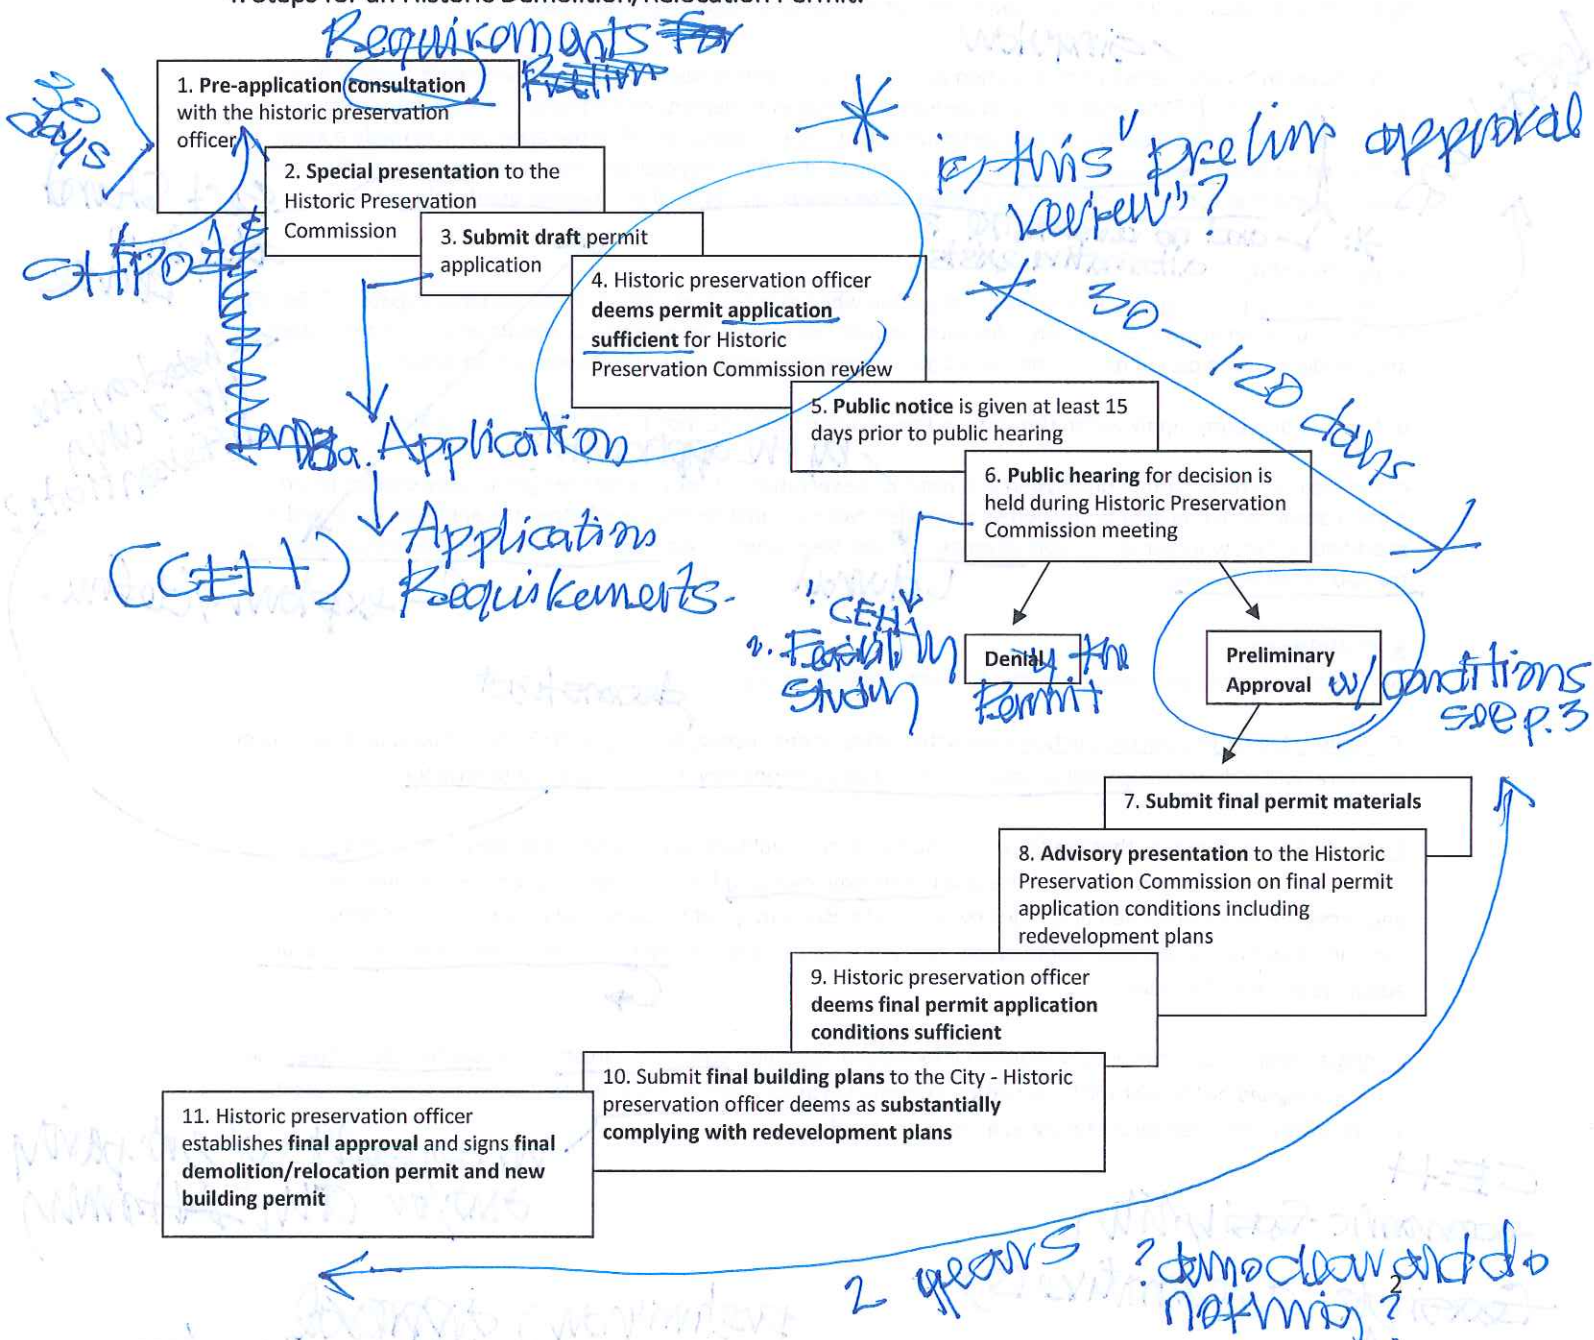 4. Steps for an Historic Demolition/Relocation Permit:
Requirements for
Prelim
30
days
1. Pre-application consultation
with the historic preservation
officer
2. Special presentation to the
Historic Preservation
Commission
3. Submit draft permit
application
4. Historic preservation officer
deems permit application
sufficient for Historic
Preservation Commission review
is this "prelim approval
review"?
SHPO
30-120 days
5. Public notice is given at least 15
days prior to public hearing
3a. Application
6. Public hearing for decision is
held during Historic Preservation
Commission meeting
Application
Requirements.
(CEH)
1. CEH
2. Feasibility
Study
Denial of the
Permit
Preliminary
Approval w/conditions
see p.3
7. Submit final permit materials
8. Advisory presentation to the Historic
Preservation Commission on final permit
application conditions including
redevelopment plans
9. Historic preservation officer
deems final permit application
conditions sufficient
10. Submit final building plans to the City - Historic
preservation officer deems as substantially
complying with redevelopment plans
11. Historic preservation officer
establishes final approval and signs final
demolition/relocation permit and new
building permit
2 years
? and do
nothing?
2